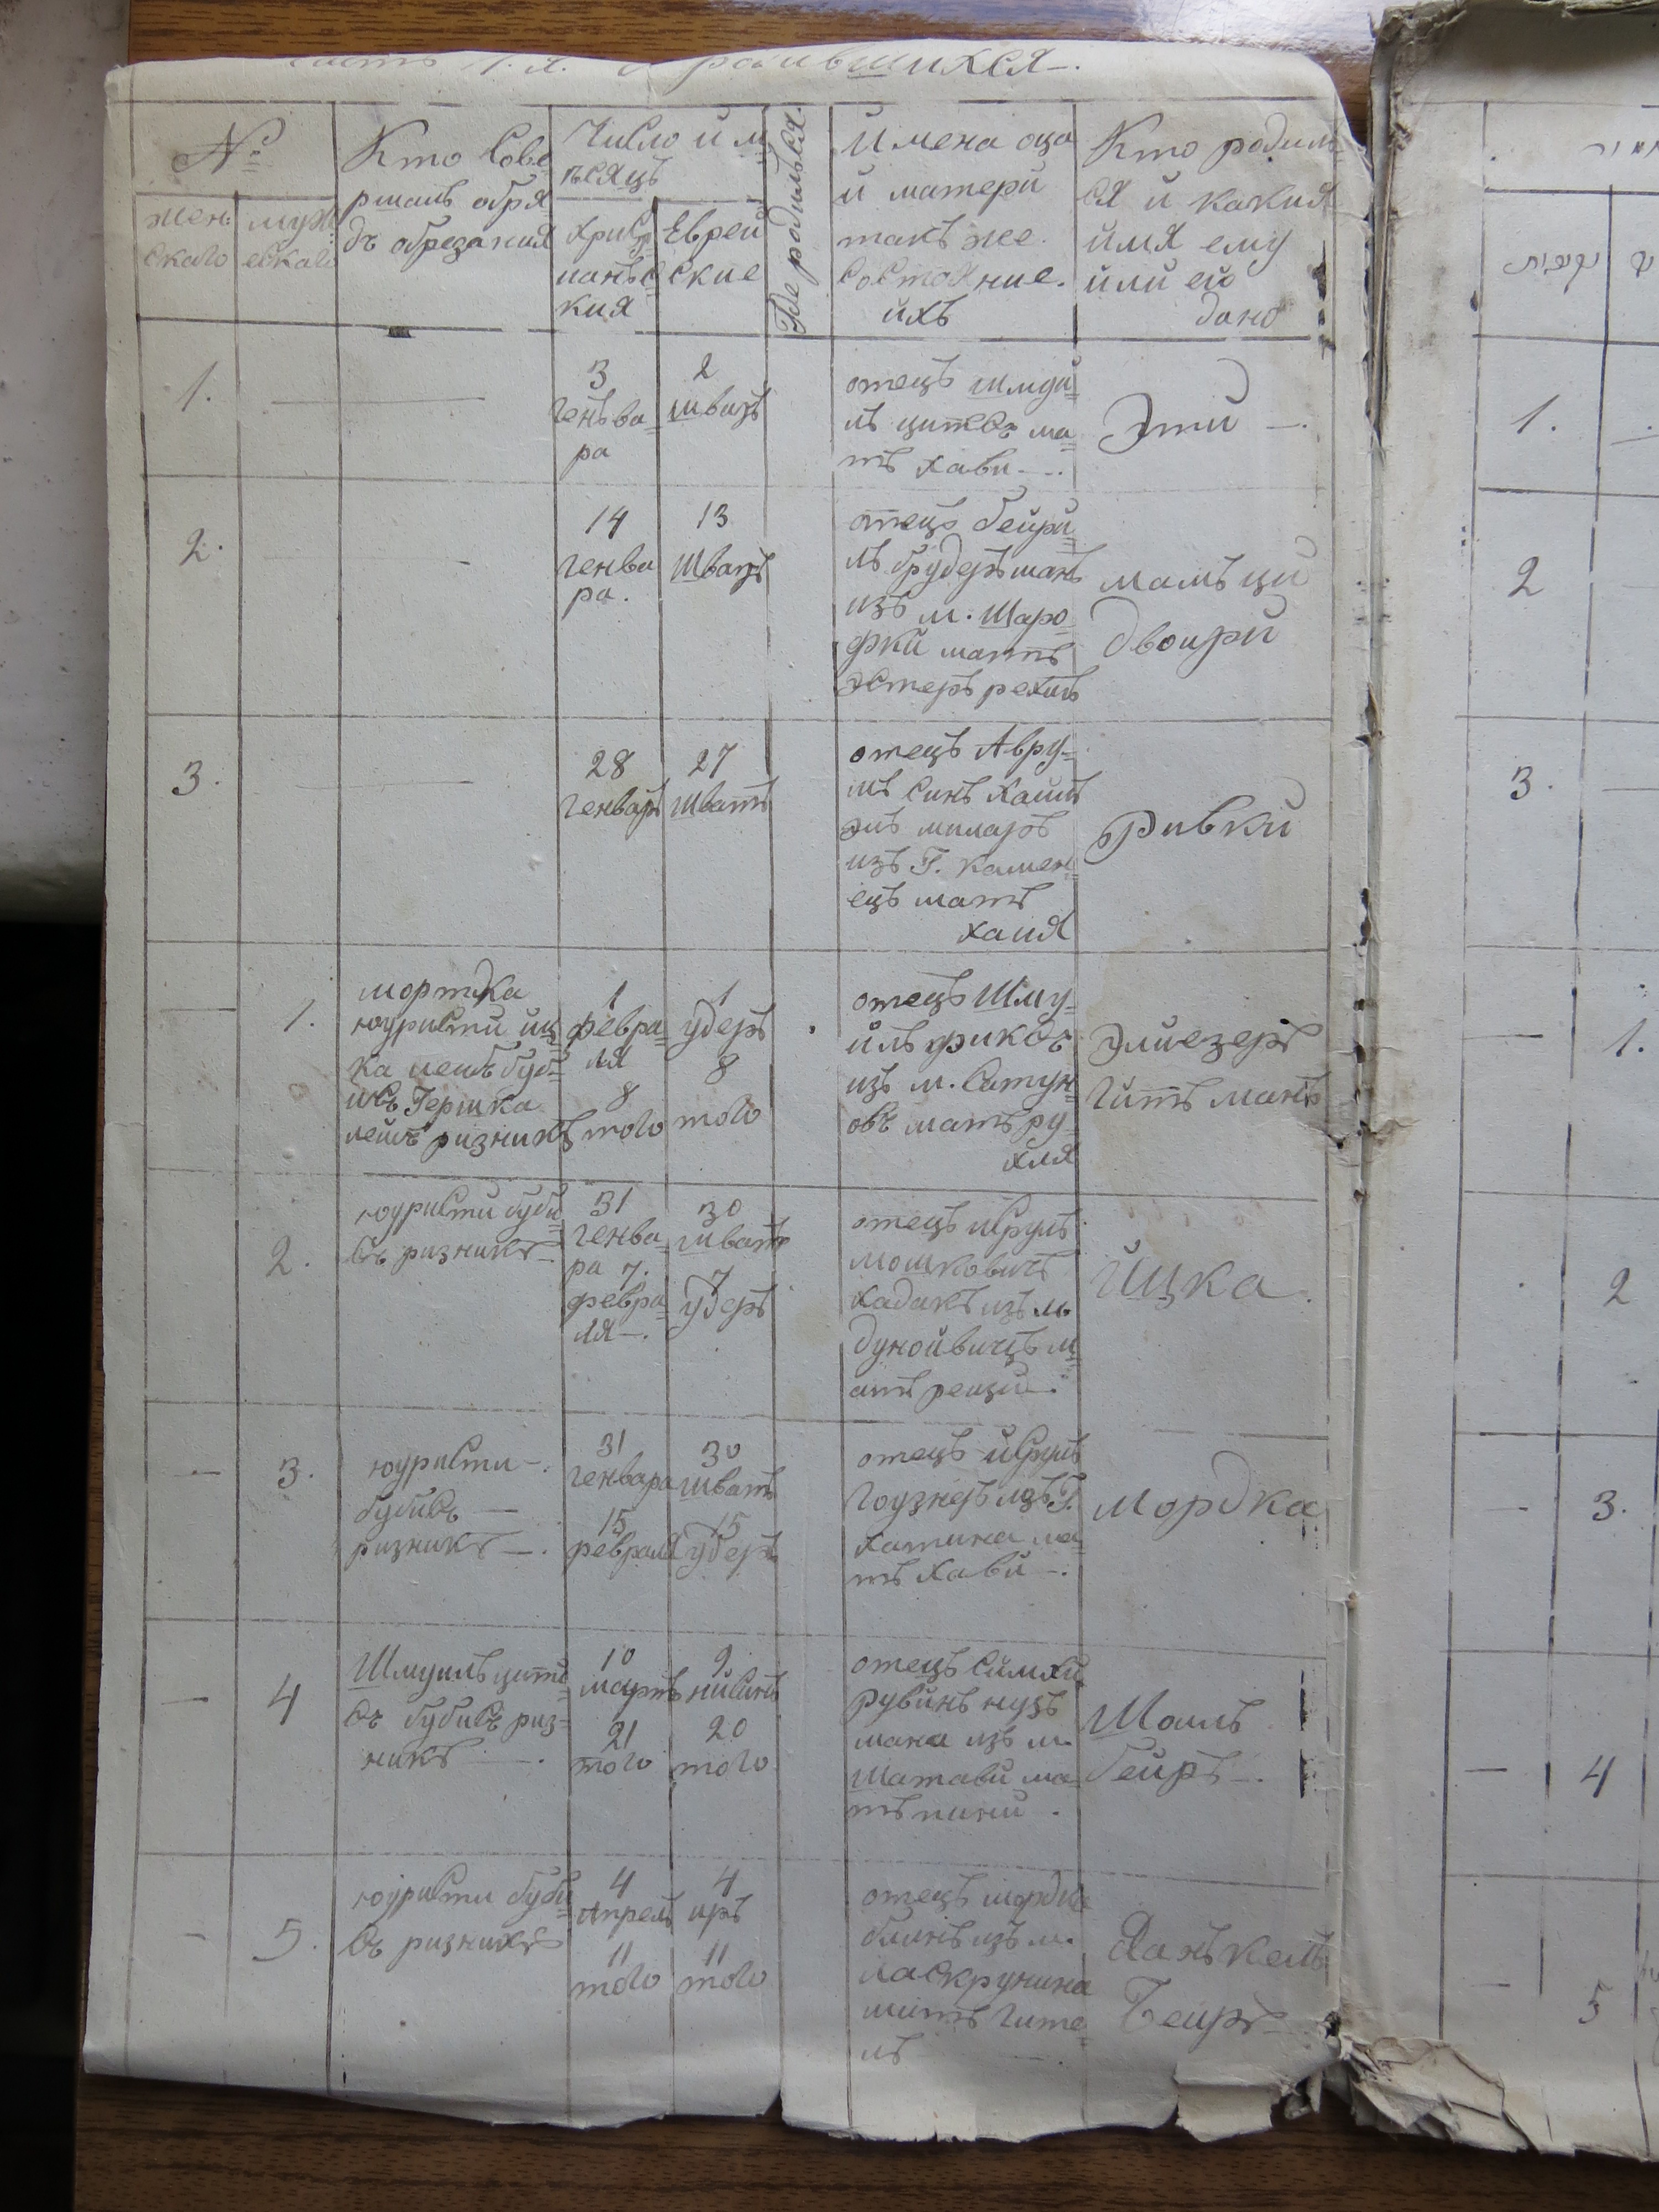 часть 1.я. о родившихся.
№
жен:
скаго
муж
ескаго
Кто Сове
ршалъ обря
дъ обрезания
Число и м
ѣсяцъ
христ
ианьс
кия
Еврей
ские
Где родилься.
Имена оца
и матери
такъ же.
Состояние.
ихъ
Кто родил
ся и какия
имя ему
или ей
дано
1.
3
геньва
ра
2
шватъ
отецъ шмуи
ль цитвъ ма
ть хави
Эти
2.
14
генва
ра.
13
Шватъ
отецъ бейри
лъ брудерьманъ
изъ м. Шаро
фки мать
Эстеръ рехиль
мальци
двойри
3.
28
генваръ
27
шватъ
отецъ Авру
мъ Синъ Хаимъ
изъ Г. Камен
ецъ мать
хаия
Ривки
1.
мортка
ка лейбъ буб
ивъ Гершка
лейбъ ризникъ
1
февра
ля
8
того
1
удеръ
8
того
отецъ Шму
иль фиксъ
изъ м. Сатун
овъ мать ру
хля
Элиезеръ
Гитьманъ
2.
юуристи буби
въ ризникъ
31
генва
ра 7.
февра
ля
30
шватъ
7
удеръ
отецъ ысруль
мошковичъ
хадакъ изъ м
дунойвицъ м
ать рейзи
Ицка
3.
юуристи
бубивъ
ризникъ
31
генвара
15
февраля
30
шватъ
15
удеръ
отецъ исруль
гоузнеръ изъ Г.
хатина ма
ть хави
Мордка
4
Шмуильцити
въ бубивъ риз
никъ
10
мартъ
21
того
9
нисинъ
20
того
отецъ Симхи
рувинъ нузъ
мана изъ м.
Шатави ма
ть пини
Шоиль
бейръ
5.
юуристи буби
въ ризникъ
4
Апрель
11
того
4
иръ
11
того
отецъ мордка
блинъ изъ м.
ласкрунина
мить гите
ль
Яанькель
Бейръ
נקבות
1.
2
3.
1.
2
3.
4
5